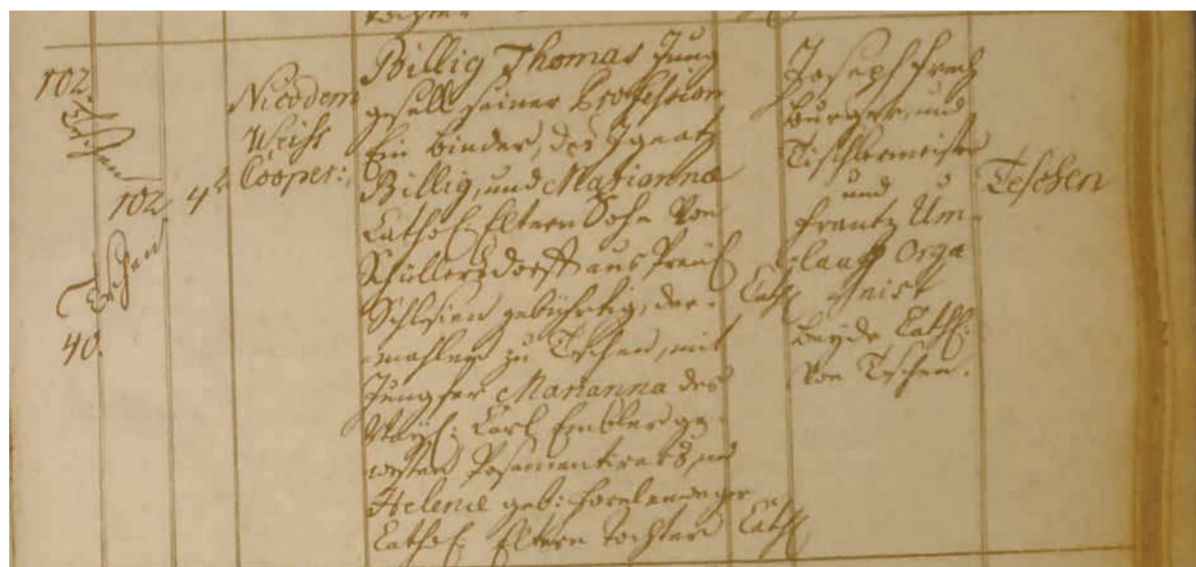 102.
Teschen
102.
4t
Teschen
40.
Nicodem
Weiss
Cooper:
Billig Thomas Jung
gesell seiner Profession
Ein Binder, des Ignatz
Billig, und Marianna
Cathol. Eltern Sohn von
Schüllersdorff aus Preuß
Schlesien gebührtig, der-
mahlen zu Teschen, mit
Jungfer Marianna des
Carl Embler ge-
westen Posamentirers, und
Helena geb:
Cathol. Eltern Tochter
Cath
Cath
Joseph
Burger, und
Tischlermeister
und
Frantz Um-
lauff Orga
nist
beyde Cathl:
von Teschen.
Teschen